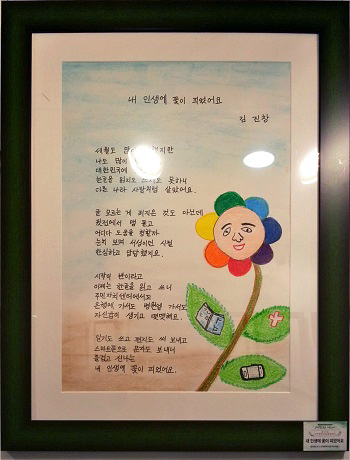 내 인생에 꽃이 피었어요
김 진창
세월도 많이
나도 많이
대한민국에
한글을 읽지도 못하니
다른 나라 사람처럼 살았어요.
글 모르는 게 죄지은 것도 아닌데
어디다 도움을 청할까
눈치 보며 서성이던 시절
한심하고 답답했지요.
시작이 반이라고
이제는 한글을 읽고 쓰니
주민자치센터에서도
은행에 가서도 병원엘 가서도
자신감이 생기고 떳떳해요.
일기도 쓰고 편지도 써 보내고
스마트폰으로 문자도 보내니
즐겁고 신나는
내 인생에 꽃이 피었어요.
내 인생에 꽃이 피었어요